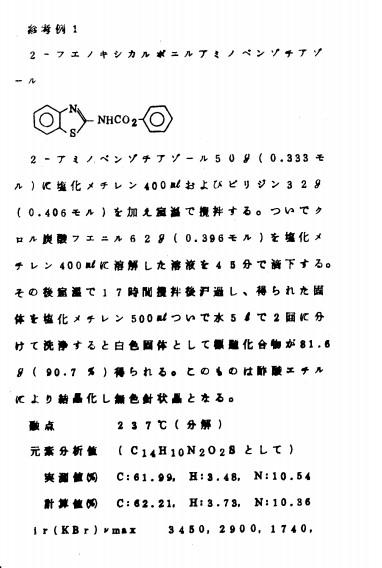 参考例1
2-フエノキシカルボニルアミノベンゾチアゾ
ール
N
S
NHCO2
2-アミノベンゾチアゾール50g(0.333モ
ル)に塩化メチレン400mlおよびピリジン32g
(0.406モル)を加え室温で攪拌する。ついでク
ロル炭酸フエニル62g(0.396モル)を塩化メ
チレン400mlに溶解した溶液を45分で滴下する。
その後室温で17時間攪拌後沪過し、得られた固
体を塩化メチレン500mlついで水5lで2回に分
けて洗浄すると白色固体として標題化合物が81.6
g(90.7%)得られる。このものは酢酸エチル
により結晶化し無色針状晶となる。
融点 237℃(分解)
元素分析値 (C14H10N2O2Sとして)
実測値(%) C:61.99, H:3.48, N:10.54
計算値(%) C:62.21, H:3.73, N:10.36
ir(KBr)νmax 3450, 2900, 1740,